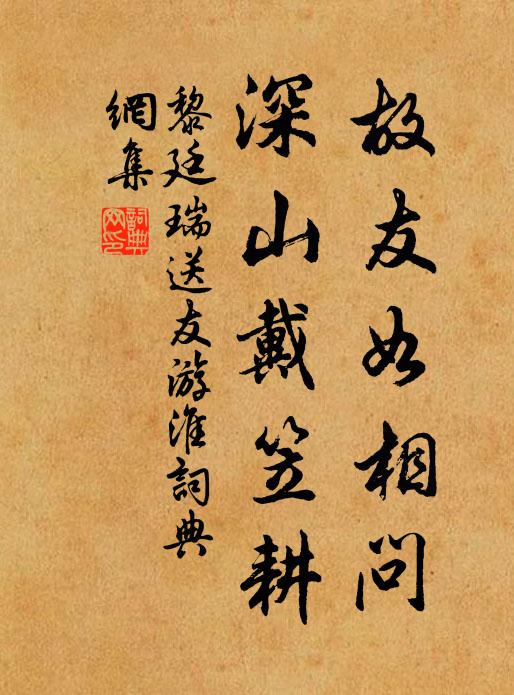 故友如相問
深山戴笠耕
黎廷瑞送友游淮詞典
網集
詞典
网印